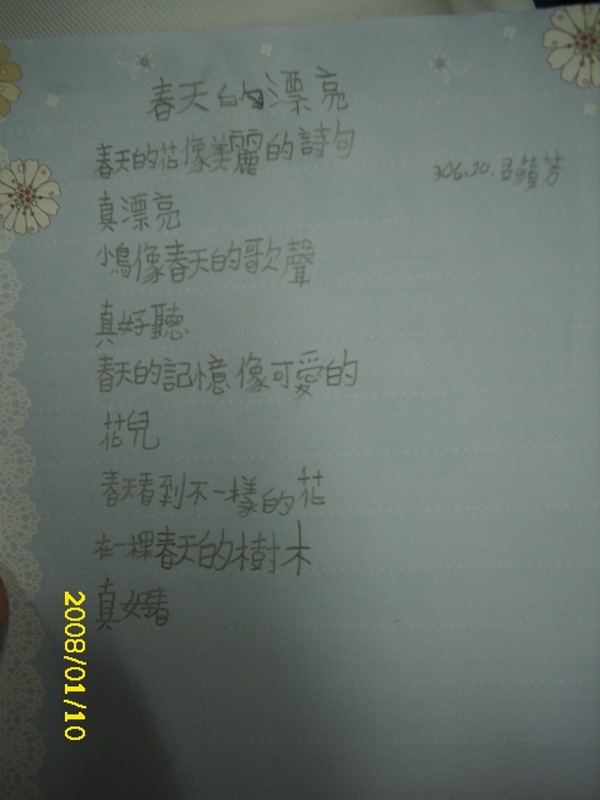 春天的漂亮
春天的花像美麗的詩句
306.20.呂蘋芳
真漂亮
小鳥像春天的歌聲
真好聽
春天的記憶像可愛的
花兒
春天看到不一樣的花
在一棵春天的樹木
真好
2008/01/10